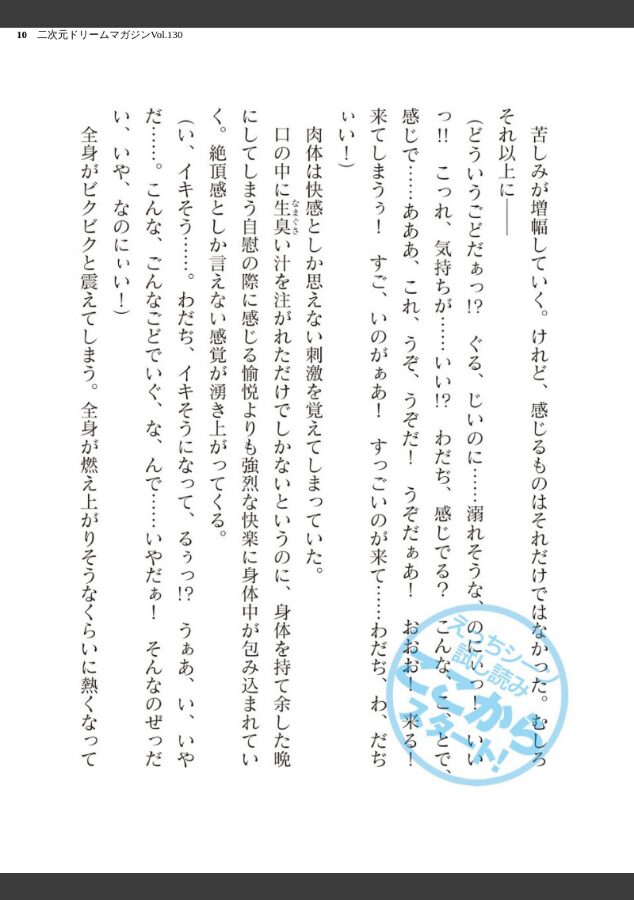 10 二次元ドリームマガジンVol.130
苦しみが増幅していく。けれど、感じるものはそれだけではなかった。むしろ
それ以上に――
（どういうごどだぁっ!?　ぐる、じいのに……溺れそうな、のにぃっ！　いい
っ!!　こっれ、気持ちが……いい!?　わだぢ、感じでる？　こんな、こ、とで、
感じで……あああ、これ、うぞ、うぞだ！　うぞだぁあ！　おおお！　来る！
来てしまうぅ！　すご、いのがぁあ！　すっごいのが来て……わだぢ、わ、だぢ
ぃい！）
肉体は快感としか思えない刺激を覚えてしまっていた。
口の中に生臭い汁を注がれただけでしかないというのに、身体を持て余した晩
なまぐさ
にしてしまう自慰の際に感じる愉悦よりも強烈な快楽に身体中が包み込まれてい
く。絶頂感としか言えない感覚が湧き上がってくる。
（い、イキそう……。わだぢ、イキそうになって、るぅっ!?　うぁあ、い、いや
だ……。こんな、ごんなごどでいぐ、な、んで……いやだぁ！　そんなのぜっだ
い、いや、なのにぃい！）
全身がビクビクと震えてしまう。全身が燃え上がりそうなくらいに熱くなって
えっちシーン
試し読み
ここから
スタート！